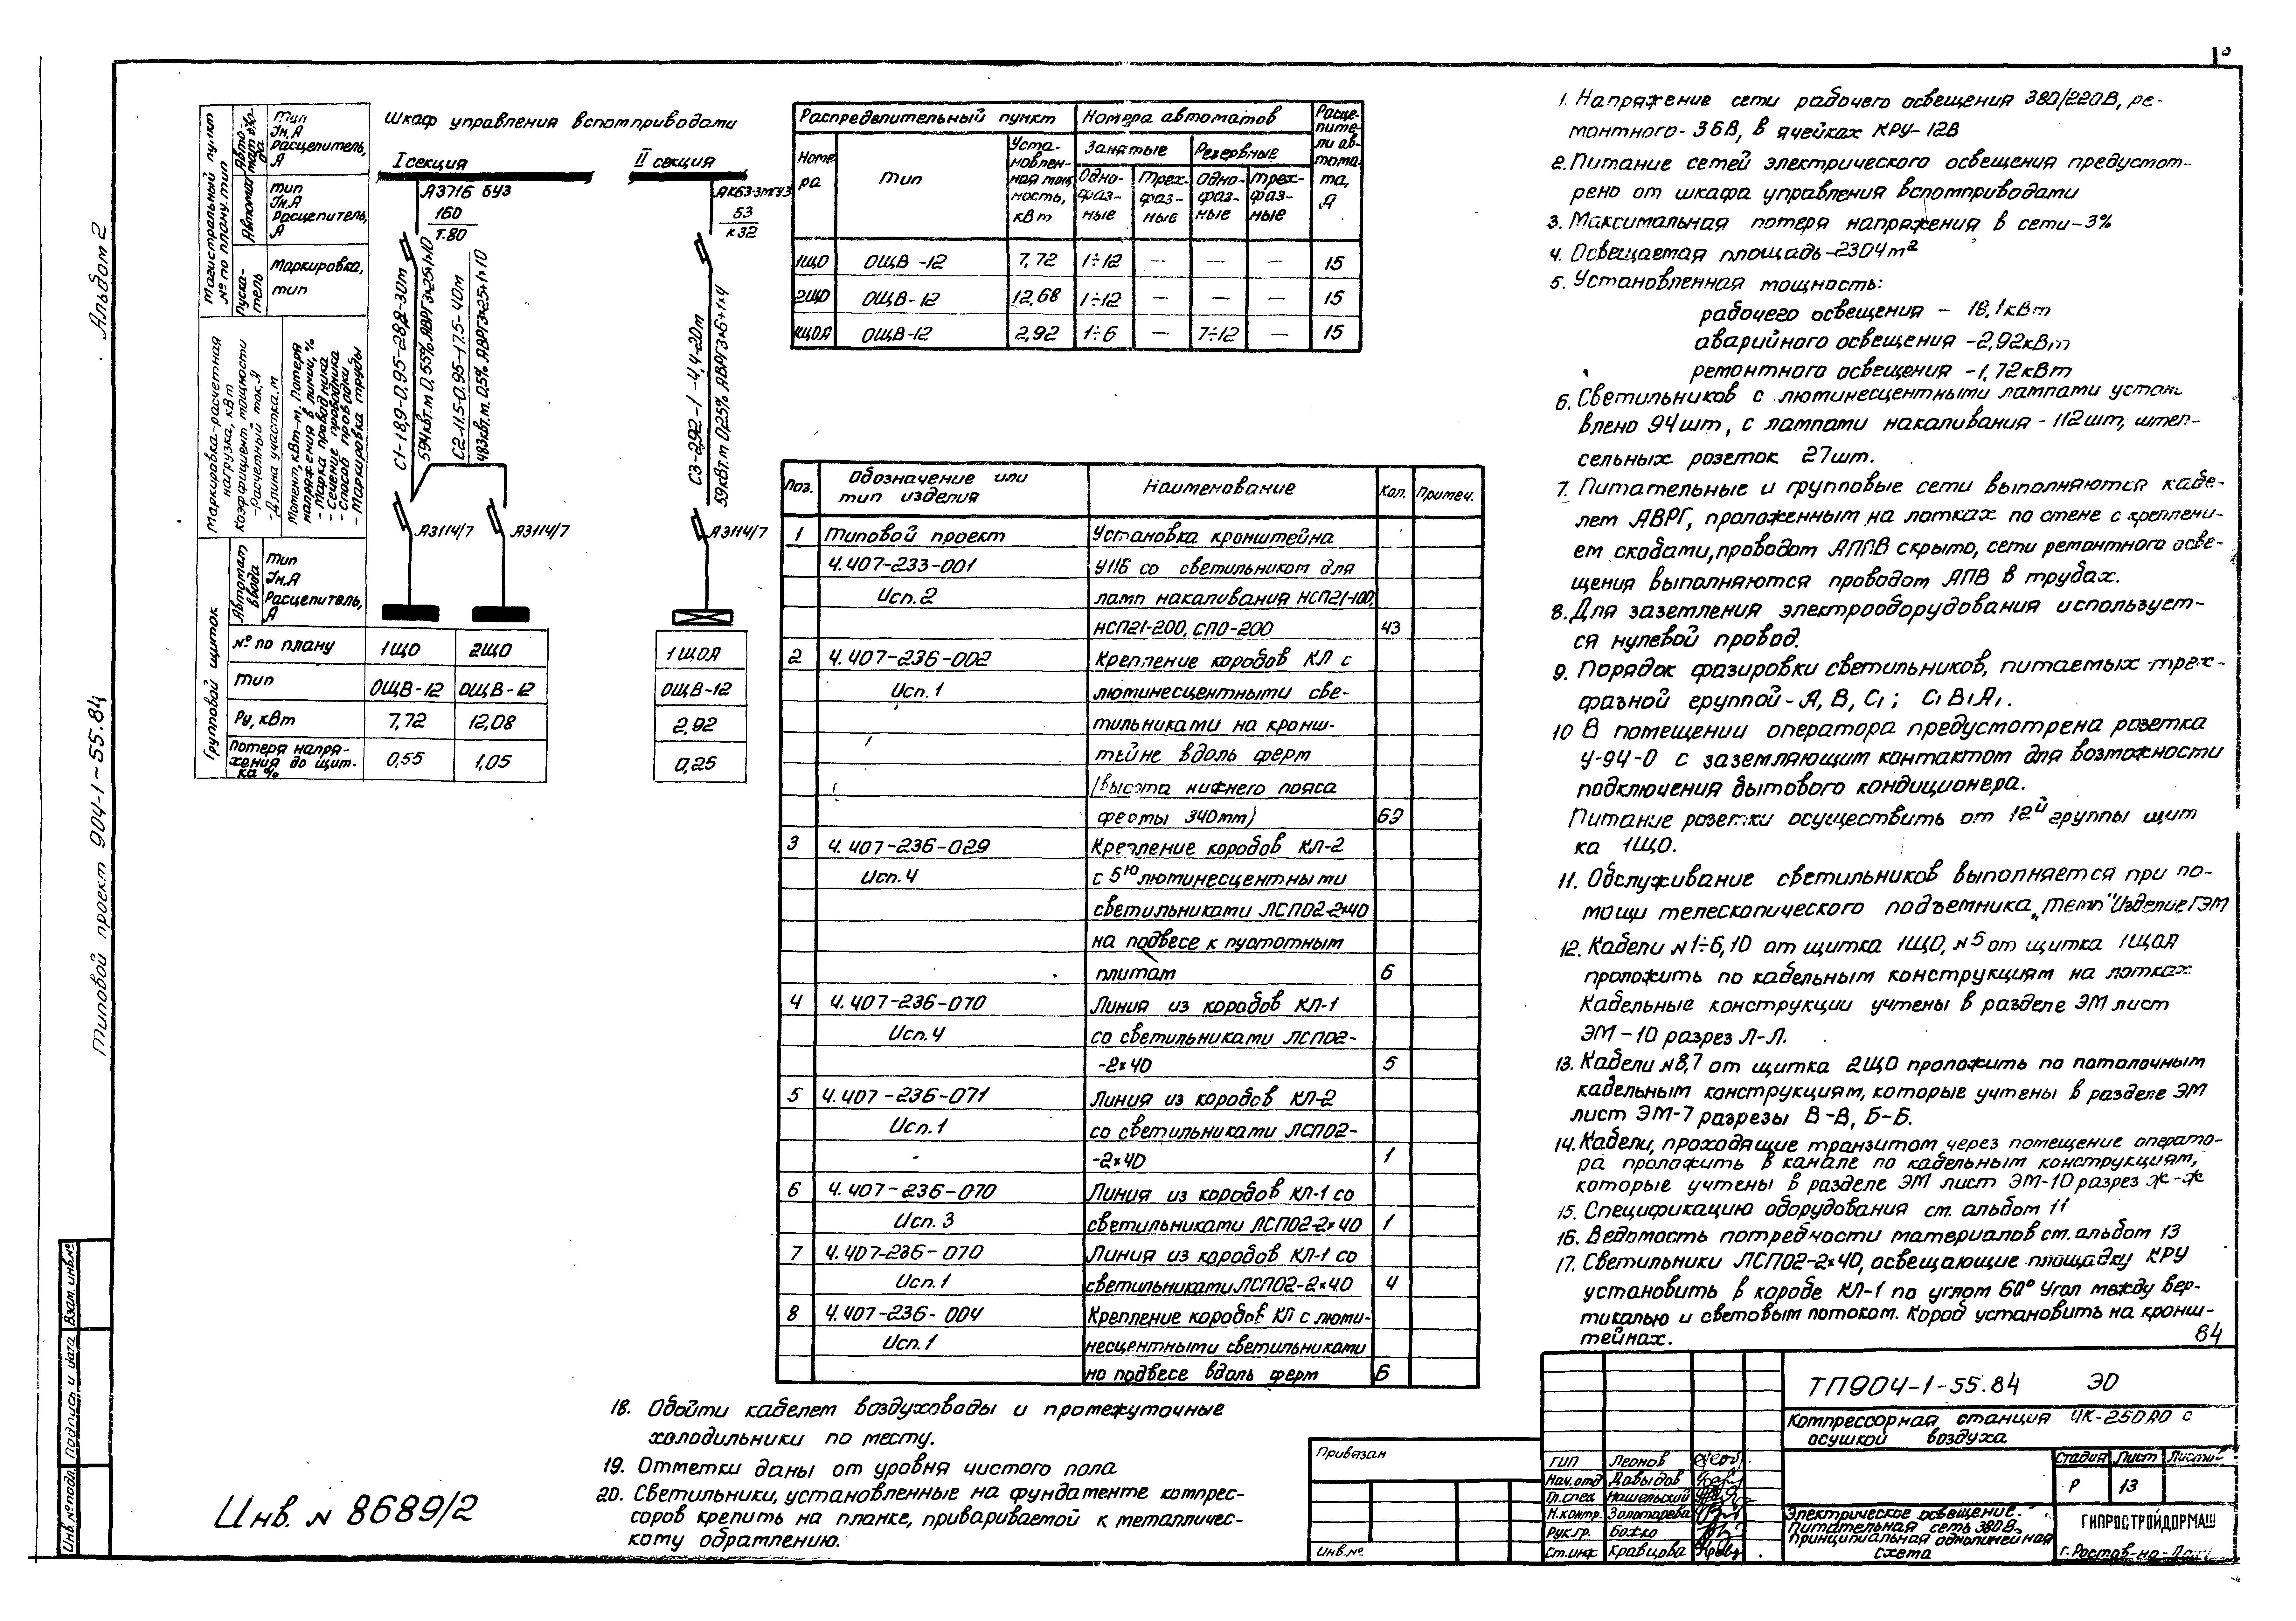 Альбом 2
Типовой проект 904-1-55.84
Взам. инв.№
Подпись и дата
Инв.№подл.
Магистральный пункт
№ по плану, тип
Автомат ввода
Тип
Iн,А
Расцепитель,
А
Автомат
тип
Iн.А
Расцепитель,
А
Пускатель
Маркировка,
тип
Маркировка-расчетная
нагрузка, кВт
Коэффициент мощности
-Расчетный ток,А
-Длина участка,м
Момент,кВт-м. Потеря
напряжения в линии,%
-Марка проводника
-Сечение проводника
-Способ проводки
-Маркировка трубы
Групповой щиток
Автомат
ввода
Тип
Iн.А
Расцепитель,
А
Шкаф управления вспомприводами
I секция
II секция
А3716 БУ3
160
Т.80
АК63-3МГУ3
63
к32
С1-18,9-0,95-28,8-30м
594кВт.м 0,55% АВРГ3×25+1×10
С2-11.5-0.95-17.5-40м
483кВт.м. 0,5% АВРГ3×25+1×10
С3-2,92-1-4,4-20м
59кВт.м 0,25% АВРГ3×6+1×4
А3114/7
А3114/7
А3114/7
№ по плану 1ЩО 2ЩО 1ЩОА
Тип ОЩВ-12 ОЩВ-12 ОЩВ-12
Ру,кВт 7,72 12,08 2,92
Потеря напря-
жения до щит-
ка % 0,55 1,05 0,25
Распределительный пункт Номера автоматов Расце-
пите-
ли ав-
тома-
та,
А
Номе-
ра
Тип
Уста-
новлен-
ная мощ
ность,
кВт
Занятые Резервные
Одно-
фаз-
ные
Трех-
фаз-
ные
Одно-
фаз-
ные
Трех-
фаз-
ные
1ЩО ОЩВ-12 7,72 1÷12 — — — 15
2ЩО ОЩВ-12 12,68 1÷12 — — — 15
1ЩОА ОЩВ-12 2,92 1÷6 — 7÷12 — 15
Поз. Обозначение или
тип изделия Наименование Кол. Примеч.
1 Типовой проект Установка кронштейна
4.407-233-001 У116 со светильником для
Исп.2 ламп накаливания НСП21-100,
НСП21-200, СПО-200 43
2 4.407-236-002 Крепление коробов КЛ с
Исп.1 люминесцентными све-
тильниками на кронш-
тейне вдоль ферм
(высота нижнего пояса
фермы 340мм) 69
3 4.407-236-029 Крепление коробов КЛ-2
Исп.4 с 5ю люминесцентными
светильниками ЛСП02-2×40
на подвесе к пустотным
плитам 6
4 4.407-236-070 Линия из коробов КЛ-1
Исп.4 со светильниками ЛСП02-
-2×40 5
5 4.407-236-071 Линия из коробов КЛ-2
Исп.1 со светильниками ЛСП02-
-2×40 1
6 4.407-236-070 Линия из коробов КЛ-1 со
Исп.3 светильниками ЛСП02-2×40 1
7 4.407-236-070 Линия из коробов КЛ-1 со
Исп.1 светильниками ЛСП02-2×40 4
8 4.407-236-004 Крепление коробов КЛ с люми-
Исп.1 несцентными светильниками
на подвесе вдоль ферм 6
1. Напряжение сети рабочего освещения 380/220В, ре-
монтного-36В, в ячейках КРУ-12В
2. Питание сетей электрического освещения предусмот-
рено от шкафа управления вспомприводами
3. Максимальная потеря напряжения в сети-3%
4. Освещаемая площадь-2304м²
5. Установленная мощность:
рабочего освещения - 18,1кВт
аварийного освещения -2,92кВт
ремонтного освещения -1,72кВт
6. Светильников с люминесцентными лампами устан
влено 94шт, с лампами накаливания-112шт, штеп-
сельных розеток 27шт.
7. Питательные и групповые сети выполняются кабе-
лем АВРГ, проложенным на лотках по стене с креплени-
ем скобами, проводом АППВ скрыто, сети ремонтного осве-
щения выполняются проводом АПВ в трубах.
8. Для заземления электрооборудования использует-
ся нулевой провод.
9. Порядок фазировки светильников, питаемых трех-
фазной группой-А, В, С,; С,В,А,.
10 В помещении оператора предусмотрена розетка
У-94-0 с заземляющим контактом для возможности
подключения бытового кондиционера.
Питание розетки осуществить от 12й группы щит
ка 1ЩО.
11. Обслуживание светильников выполняется при по-
мощи телескопического подъемника „Темп" Изделие ГЭМ
12. Кабели №1÷6,10 от щитка 1ЩО, №5 от щитка 1ЩОА
проложить по кабельным конструкциям на лотках
Кабельные конструкции учтены в разделе ЭМ лист
ЭМ-10 разрез Л-Л.
13. Кабели №8,7 от щитка 2ЩО проложить по потолочным
кабельным конструкциям, которые учтены в разделе ЭМ
лист ЭМ-7 разрезы В-В, Б-Б.
14. Кабели, проходящие транзитом через помещение операто-
ра проложить в канале по кабельным конструкциям,
которые учтены в разделе ЭМ лист ЭМ-10 разрез Ж-Ж
15. Спецификацию оборудования см. альбом 11
16. Ведомость потребности материалов см. альбом 13
17. Светильники ЛСП02-2×40, освещающие площадку КРУ
установить в коробе КЛ-1 по углом 60° Угол между вер-
тикалью и световым потоком. Короб установить на кронш-
тейнах.
84
18. Обойти кабелем воздуховоды и промежуточные
холодильники по месту.
19. Отметки даны от уровня чистого пола
20. Светильники, установленные на фундаменте компрес-
соров крепить на планке, привариваемой к металличес-
кому обрамлению.
Инв. № 8689/2
Привязан
Инв.№
ТП904-1-55.84 ЭО
Компрессорная станция 4К-250АО с
осушкой воздуха
ГИП Леонов
Нач.отд Давыдов
Гл.спец Нашельский
Н.контр. Золотарева
Рук.гр. Божко
Ст.инж Кравцова
Стадия Лист Листов
Р 13
Электрическое освещение.
Питательная сеть 380В.
Принципиальная однолинейная
схема
ГИПРОСТРОЙДОРМАШ
г.Ростов-на-Дону